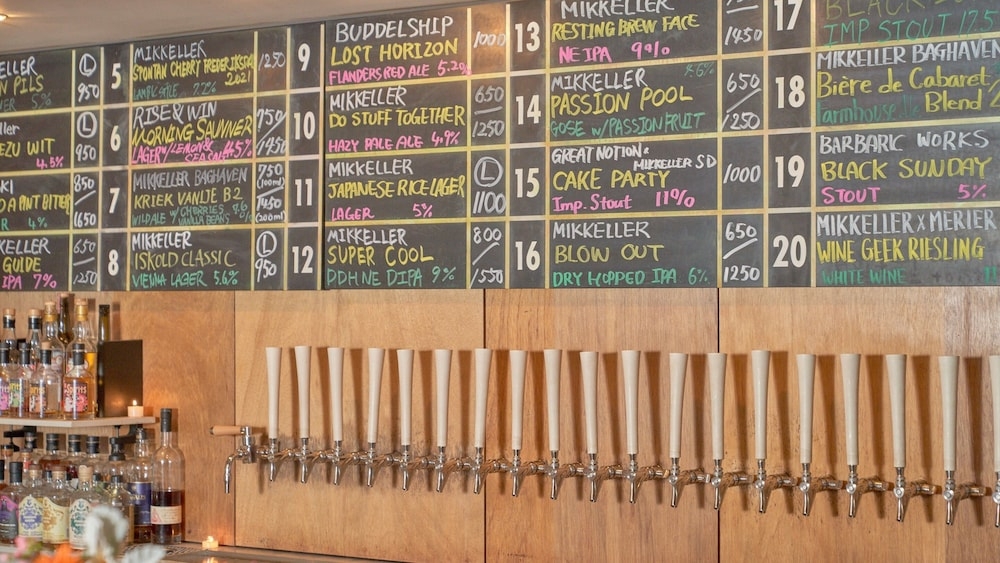 KELLER
N PILS
5%
Ⓛ
950
KELLER
EZU WIT
4.5%
Ⓛ
950
SKI
D A PINT BITTER
R 4%
850
1650
KELLER
GUIDE
7%
650
1250
5
MIKKELLER
SPONTAN CHERRY FREDERIKSDAL
2021
LAMBIC STYLE 7.2%
6
RISE & WIN
MORNING SAUVNER
LAGER w/LEMON &
SEASALT 4.5%
750
1450
7
MIKKELLER BAGHAVEN
KRIEK VANTJE B2
WILD ALE w/ CHERRIES
VANILLA BEANS
750
(100ml)
1450
(200ml)
8
MIKKELLER
ISKOLD CLASSIC
VIENNA LAGER 5.6%
Ⓛ
950
9
BUDDELSHIP
LOST HORIZON
FLANDERS RED ALE 5.2%
1000
10
MIKKELLER
DO STUFF TOGETHER
HAZY PALE ALE 4.9%
650
1250
11
MIKKELLER
JAPANESE RICE LAGER
LAGER 5%
Ⓛ
1100
12
MIKKELLER
SUPER COOL
DDH NE DIPA 9%
800
1550
13
MIKKELLER
RESTING BREW FACE
NE IPA 9%
1450
14
MIKKELLER
PASSION POOL
GOSE w/PASSION FRUIT
650
1250
15
GREAT NOTION &
MIKKELLER SD
CAKE PARTY
Imp. Stout 11%
1000
16
MIKKELLER
BLOW OUT
DRY HOPPED IPA 6%
650
1250
17
IMP STOUT
18
MIKKELLER BAGHAVEN
Bière de Cabaret
Blend 2
Farmhouse
19
BARBARIC WORKS
BLACK SUNDAY
STOUT 5%
20
MIKKELLER x MERIER
WINE GEEK RIESLING
WHITE WINE